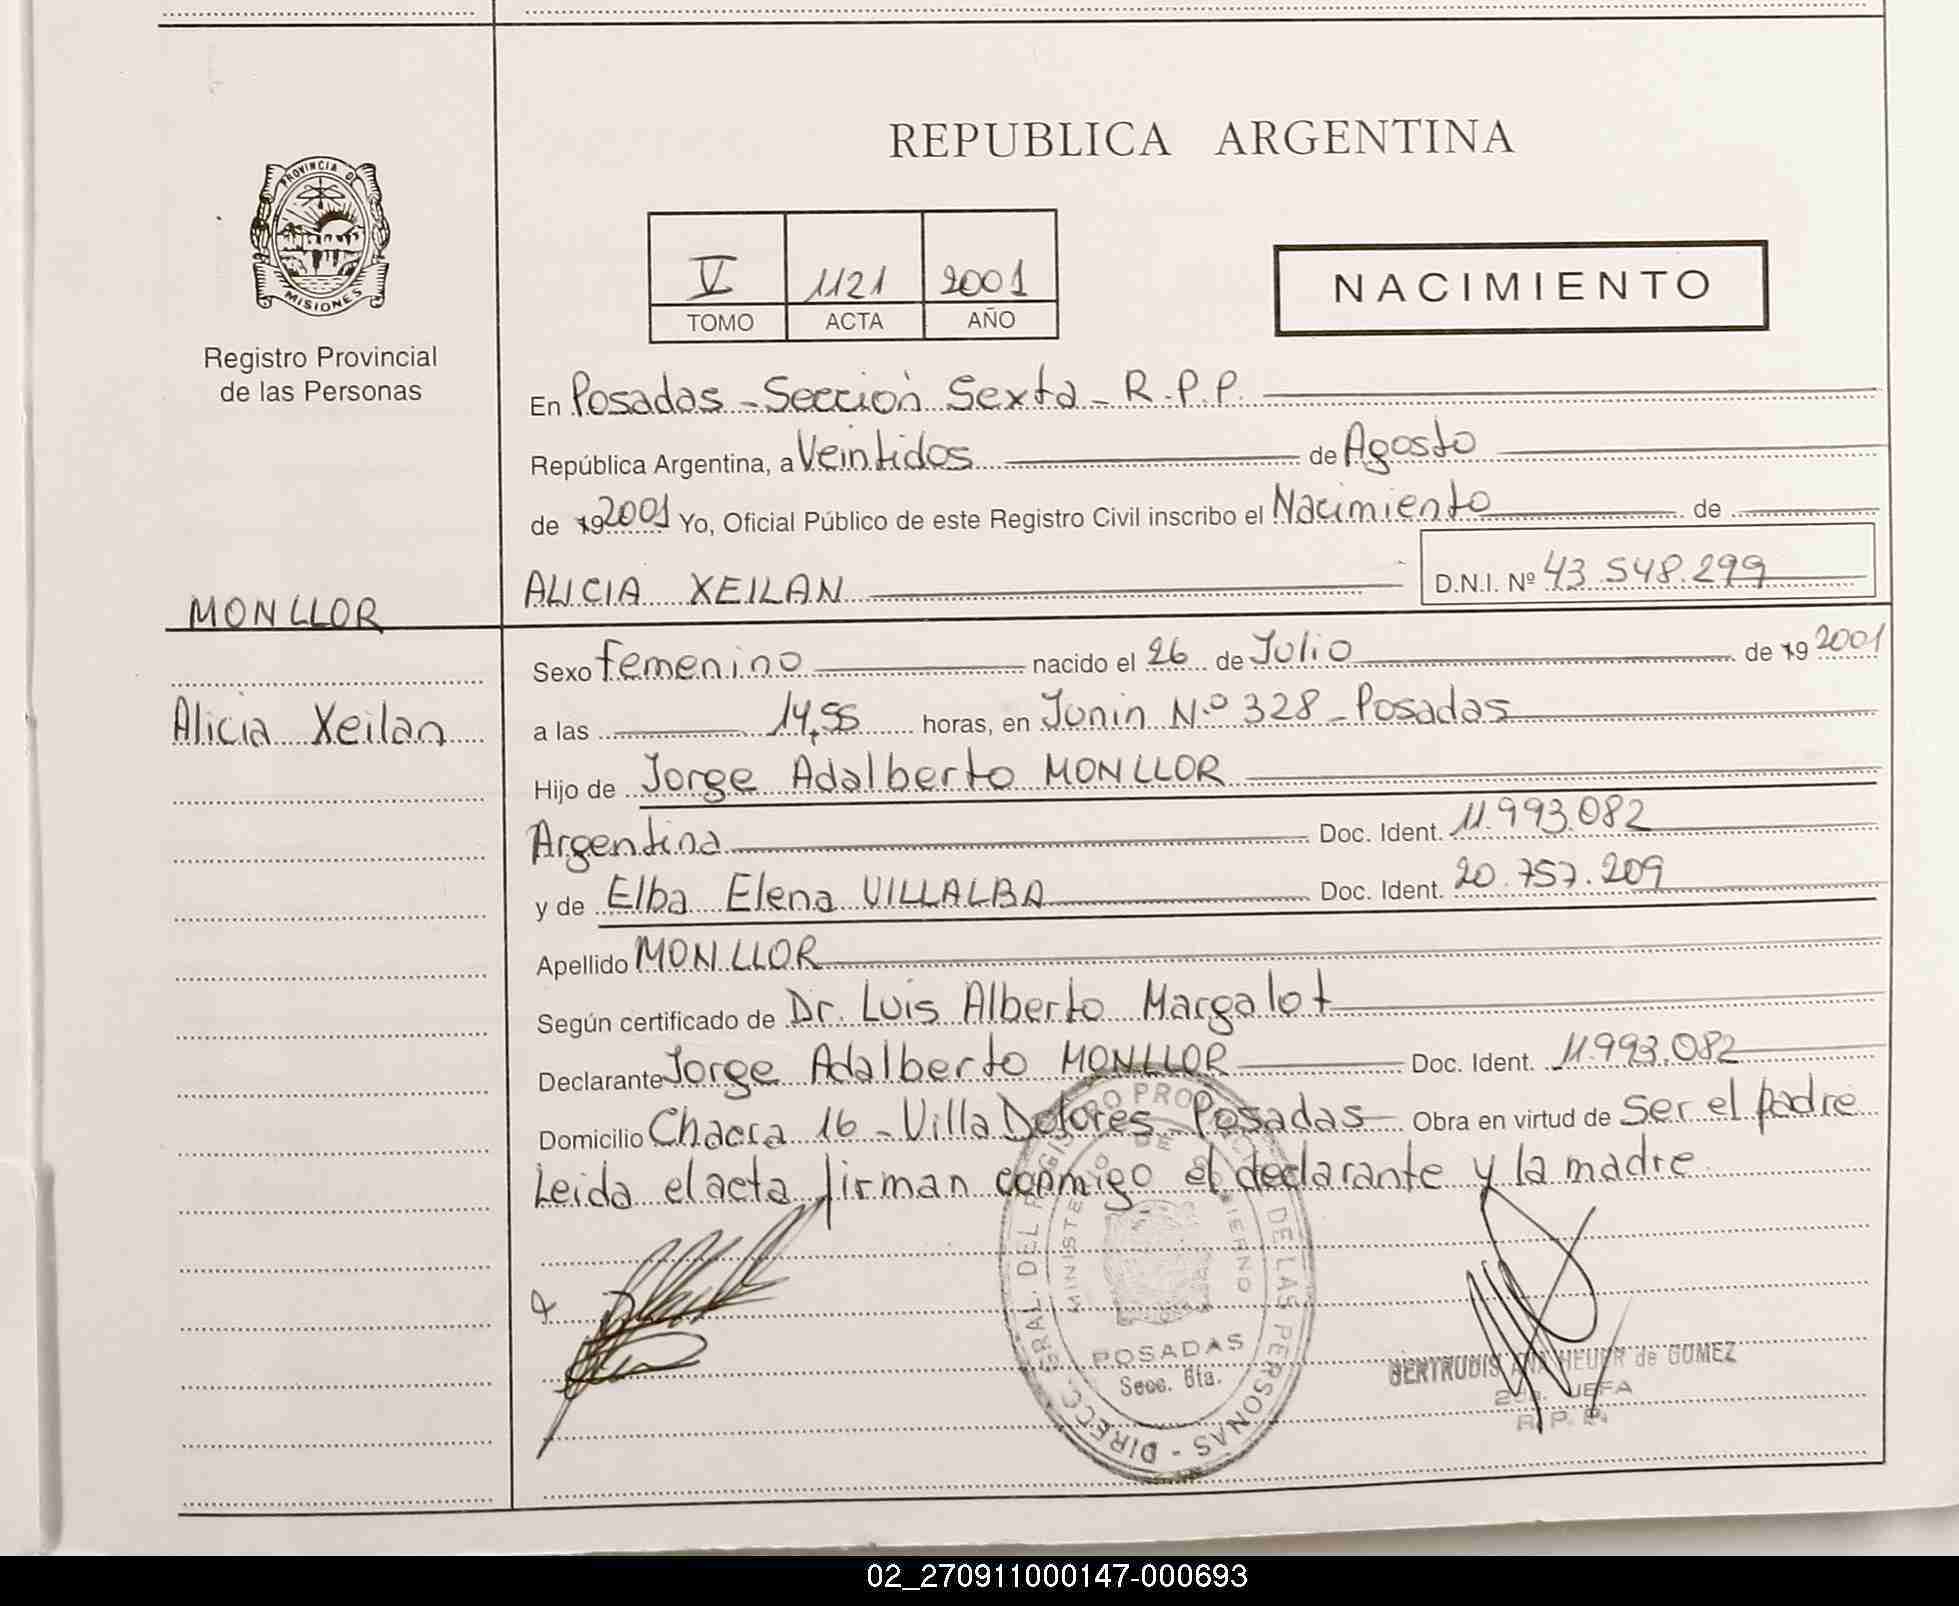 REPUBLICA ARGENTINA
PROVINCIA DE
MISIONES
Registro Provincial
de las Personas
V 1121 2001
TOMO ACTA AÑO
NACIMIENTO
En Posadas - Sección Sexta - R.P.P.
República Argentina, a Veintidos de Agosto
de 19 2001 Yo, Oficial Público de este Registro Civil inscribo el Nacimiento de
ALICIA XEILAN D.N.I. Nº 43.548.299
MONLLOR
Alicia Xeilan
Sexo femenino nacido el 26 de Julio de 19 2001
a las 14,55 horas, en Junin N.º 328 - Posadas
Hijo de Jorge Adalberto MONLLOR
Argentina Doc. Ident. 11.993.082
y de Elba Elena VILLALBA Doc. Ident. 20.757.209
Apellido MONLLOR
Según certificado de Dr. Luis Alberto Margalot
Declarante Jorge Adalberto MONLLOR Doc. Ident. 11.993.082
Domicilio Chacra 16 - Villa Dolores - Posadas Obra en virtud de ser el padre
Leida el acta firman conmigo el declarante y la madre
DIRECC. GRAL. DEL REGISTRO PROVINCIAL DE LAS PERSONAS -
MINISTERIO DE GOBIERNO
POSADAS
Secc. 6ta.
GERTRUDIS ANA HEUER de GOMEZ
2da. JEFA
R. P. P.
02_270911000147-000693